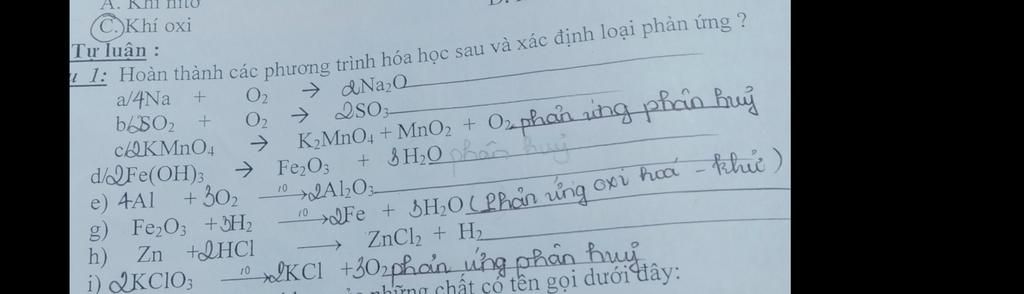 A. Khí nitơ
C. Khí oxi
Tự luận :
1: Hoàn thành các phương trình hóa học sau và xác định loại phản ứng ?
a/4Na + O₂ → 2Na₂O
b/2SO₂ + O₂ → 2SO₃
c/2KMnO₄ → K₂MnO₄ + MnO₂ + O₂ phản ứng phân huỷ
d/2Fe(OH)₃ → Fe₂O₃ + 3H₂O phân huỷ
e) 4Al + 3O₂ →(t0) 2Al₂O₃
g) Fe₂O₃ + 3H₂ →(t0) 2Fe + 3H₂O (Phản ứng oxi hoá - khử)
h) Zn + 2HCl → ZnCl₂ + H₂
i) 2KClO₃ →(t0) 2KCl + 3O₂ phản ứng phân huỷ
những chất có tên gọi dưới đây: